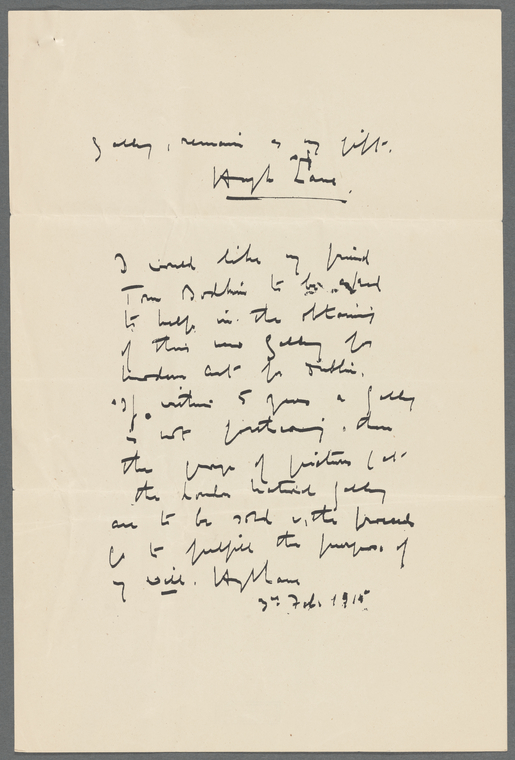 Gallery, remain as my gift.
Hugh Lane.
I would like my friend
Tom Bodkin to be asked
to help in the obtaining
of this new Gallery of
modern art for Dublin.
"If within 5 years a Gallery
is not forthcoming, then
the group of pictures (at
the London National Gallery
are to be sold & the proceeds
go to fulfill the purpose of
my will. Hugh Lane
3rd Feb. 1915